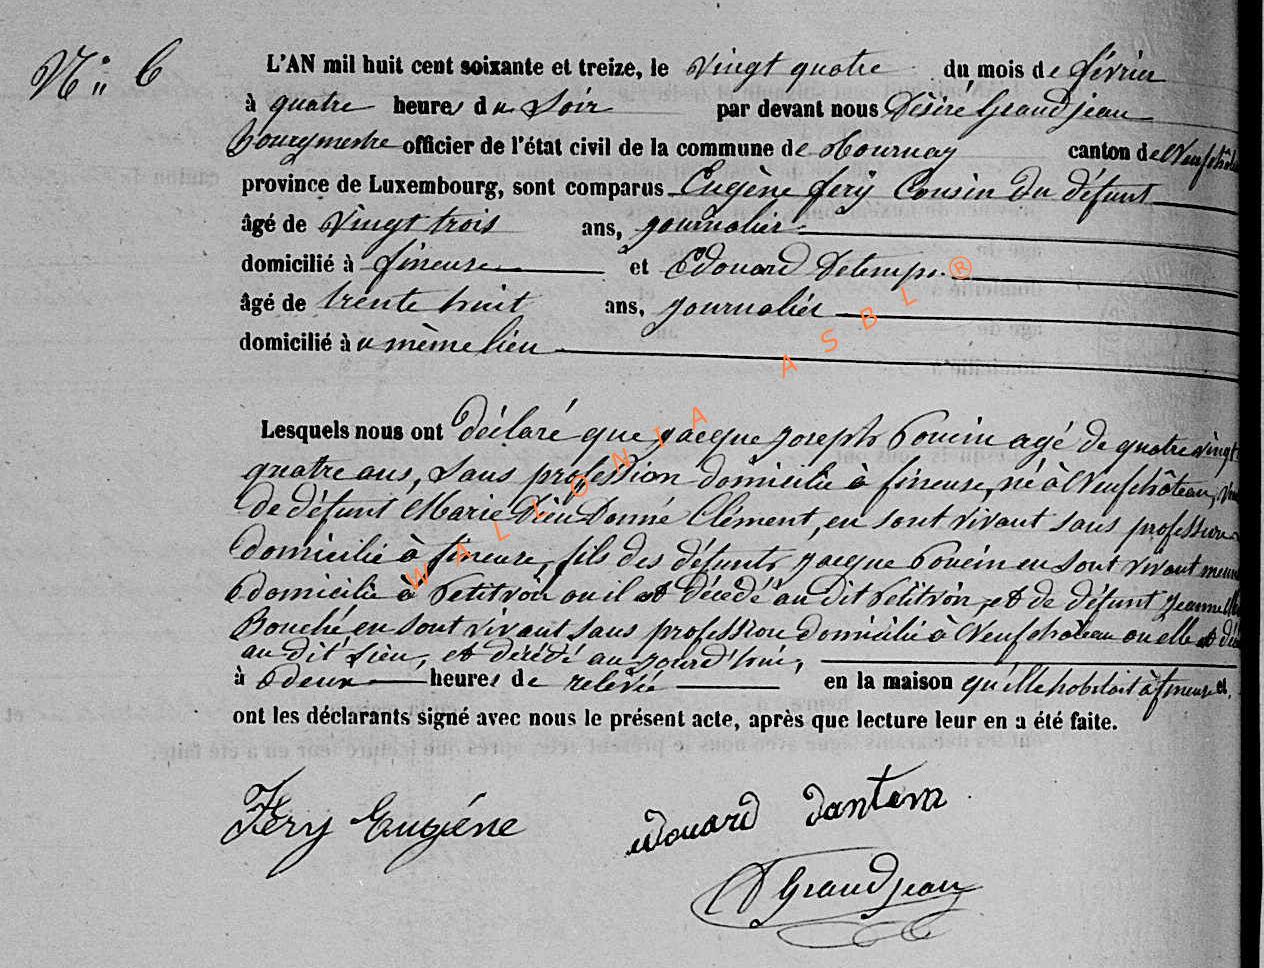 N° 6
L'AN mil huit cent soixante et treize, le vingt quatre du mois de février
à quatre heures du soir par devant nous Désiré Grandjean
bourgmestre officier de l'état civil de la commune de Tournay canton de Neufchâte
province de Luxembourg, sont comparus Eugène fery Cousin du défunt
âgé de vingt trois ans, journalier
domicilié à fineuse et Edouard Detemps
âgé de trente huit ans, journalier
domicilié à u même lieu
Lesquels nous ont déclaré que jacque joseph Poncin agé de quatre vingt
quatre ans, sans profession domicilié à fineuse, né à Neufchâteau,
de défunt Marie Dieu Donné Clément, en sont vivant sans profession
domicilié à fineuse, fils des défunts jacque Poncin en sont vivant
domicilié à Petitvoir ou il est décédé au dit Petitvoir, et de défunt jeanne
Bouché en sont vivant sans profession domicilié à Neufchâteau ou elle et
au dit Lieu, et décédé au jourd'hui,
à deux heures de relévée en la maison qu'ille habitait à fineuse et,
ont les déclarants signé avec nous le présent acte, après que lecture leur en a été faite.
Fery Eugéne
Edouard dantem
D Grandjean
WALLONIA ASBL ®